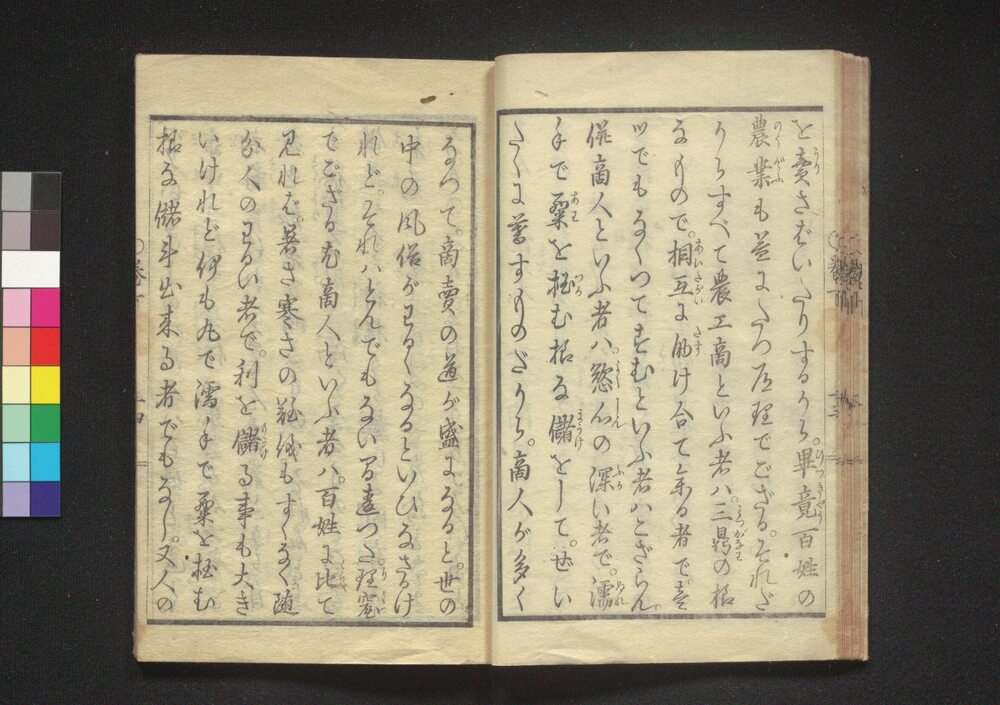 を賣さばいたりするから。畢竟百姓の
農業も益にたつ道理でござる。それだ
からすべて農工商といふ者ハ。三鼎の様
なもので。相互に助け合て居る者で。壱
ツでもなくつてすむといふ者ハござらん。
併商人といふ者ハ。慾心の深い者で。濡
手で粟を掴む様な儲をして。ぜい
たくに暮すものだから。商人が多く
なつて。商賣の道が盛になると。世の
中の風俗がわるくなるといひなさるけ
れど。それハとんでもない間違つた理窟
でござる。尤商人といふ者ハ。百姓に比て
見れば。暑さ寒さの難儀もすくなく。随
分人のわるい者で。利を儲る事も大き
いけれど。何も丸で濡手で粟を掴む
様な儲斗出来る者でもなし。又人の